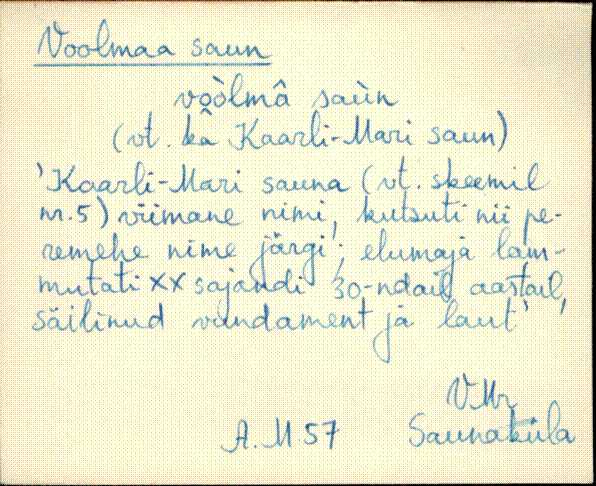 Voolmaa saun
voòlmâ saùn
(vt. kâ Kaarli-Mari saun)
'Kaarli-Mari sauna (vt. skeemil
nr. 5) viimane nimi, kutsuti nii pe-
remehe nime järgi; elumaja lam-
mutati XX sajandi 30-ndail aastail,
säilinud vundament ja laut'
VMr
A. M 57 Saunaküla